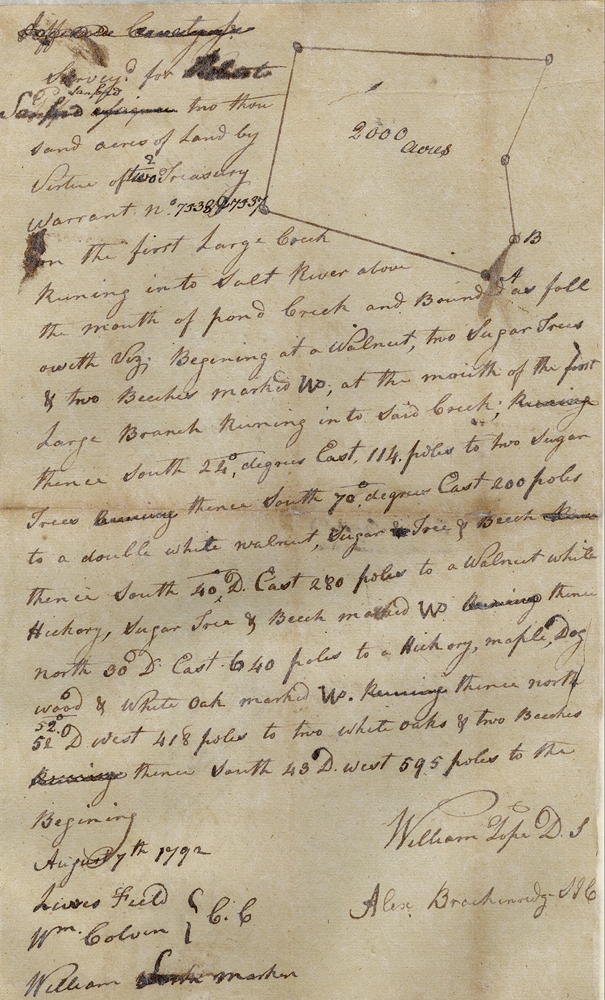 Survey'd for
Sanford
Sanford two thou
sand acres of Land by
2
Virtue of two Treasury
Warrant no. 7338 & 7337
2000
acres
B
A
on the first Large Creek
Runing in to Salt River above
the mouth of pond Creek and Bound'd as foll
owith Viz; Begining at a Walnut, two Sugar Trees
& two Beeches marked WP, at the mouth of the first
Large Branch Runing in to said Creek; Runing
thence South 22°, degrees East, 114. poles to two Sugar
Trees Runing thence South 70°, degrees East 200 poles
to a double white walnut, Sugar Tree & Beech
thence South 40°, D. East 280 poles to a Walnut white
Hickory, Sugar Tree & Beech marked WP. Runing thence
north 30° D East 640 poles to a Hickory, maple, Dog
wood & White Oak marked WP. Runing thence north
52°
52 D west 418 poles to two white oaks & two Beeches
Runing thence South 43 D. west 595 poles to the
Begining
August 7th 1792
William Pope D. S
Field
Wm. Colvin } C. C
Alex. Brackinridg
William marker